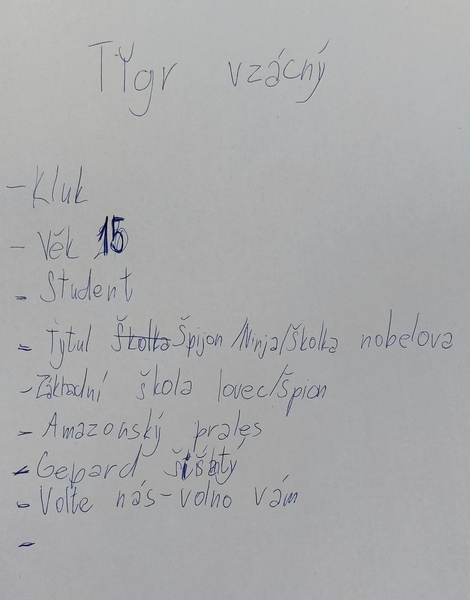 TYgr vzácný
- Kluk
- Věk 15
- Student
- Tytul Školka Špijon/Ninja/Školka nobelova
- Základní škola lovec/špion
- Amazonský prales
- Gepard šišatý
- Volte nás-volno vám
-